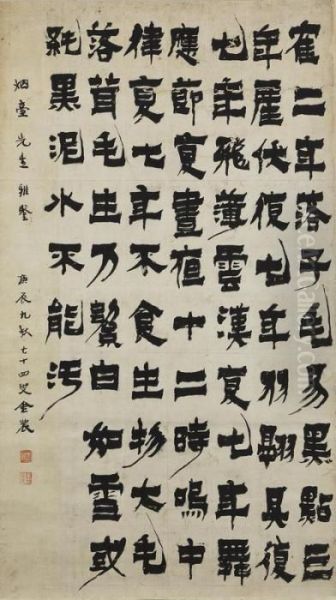 寉二年落子毛易黑點三
年產伏復七年羽翮具復
七年飛薄雲漢复七年舞
應節复晝夜十二時鳴中
律复七年不食生物大毛
落茸毛生乃白如雪或
純黑泥水不能污
烟臺先生雅鑒 庚辰九秋七十四叟金農